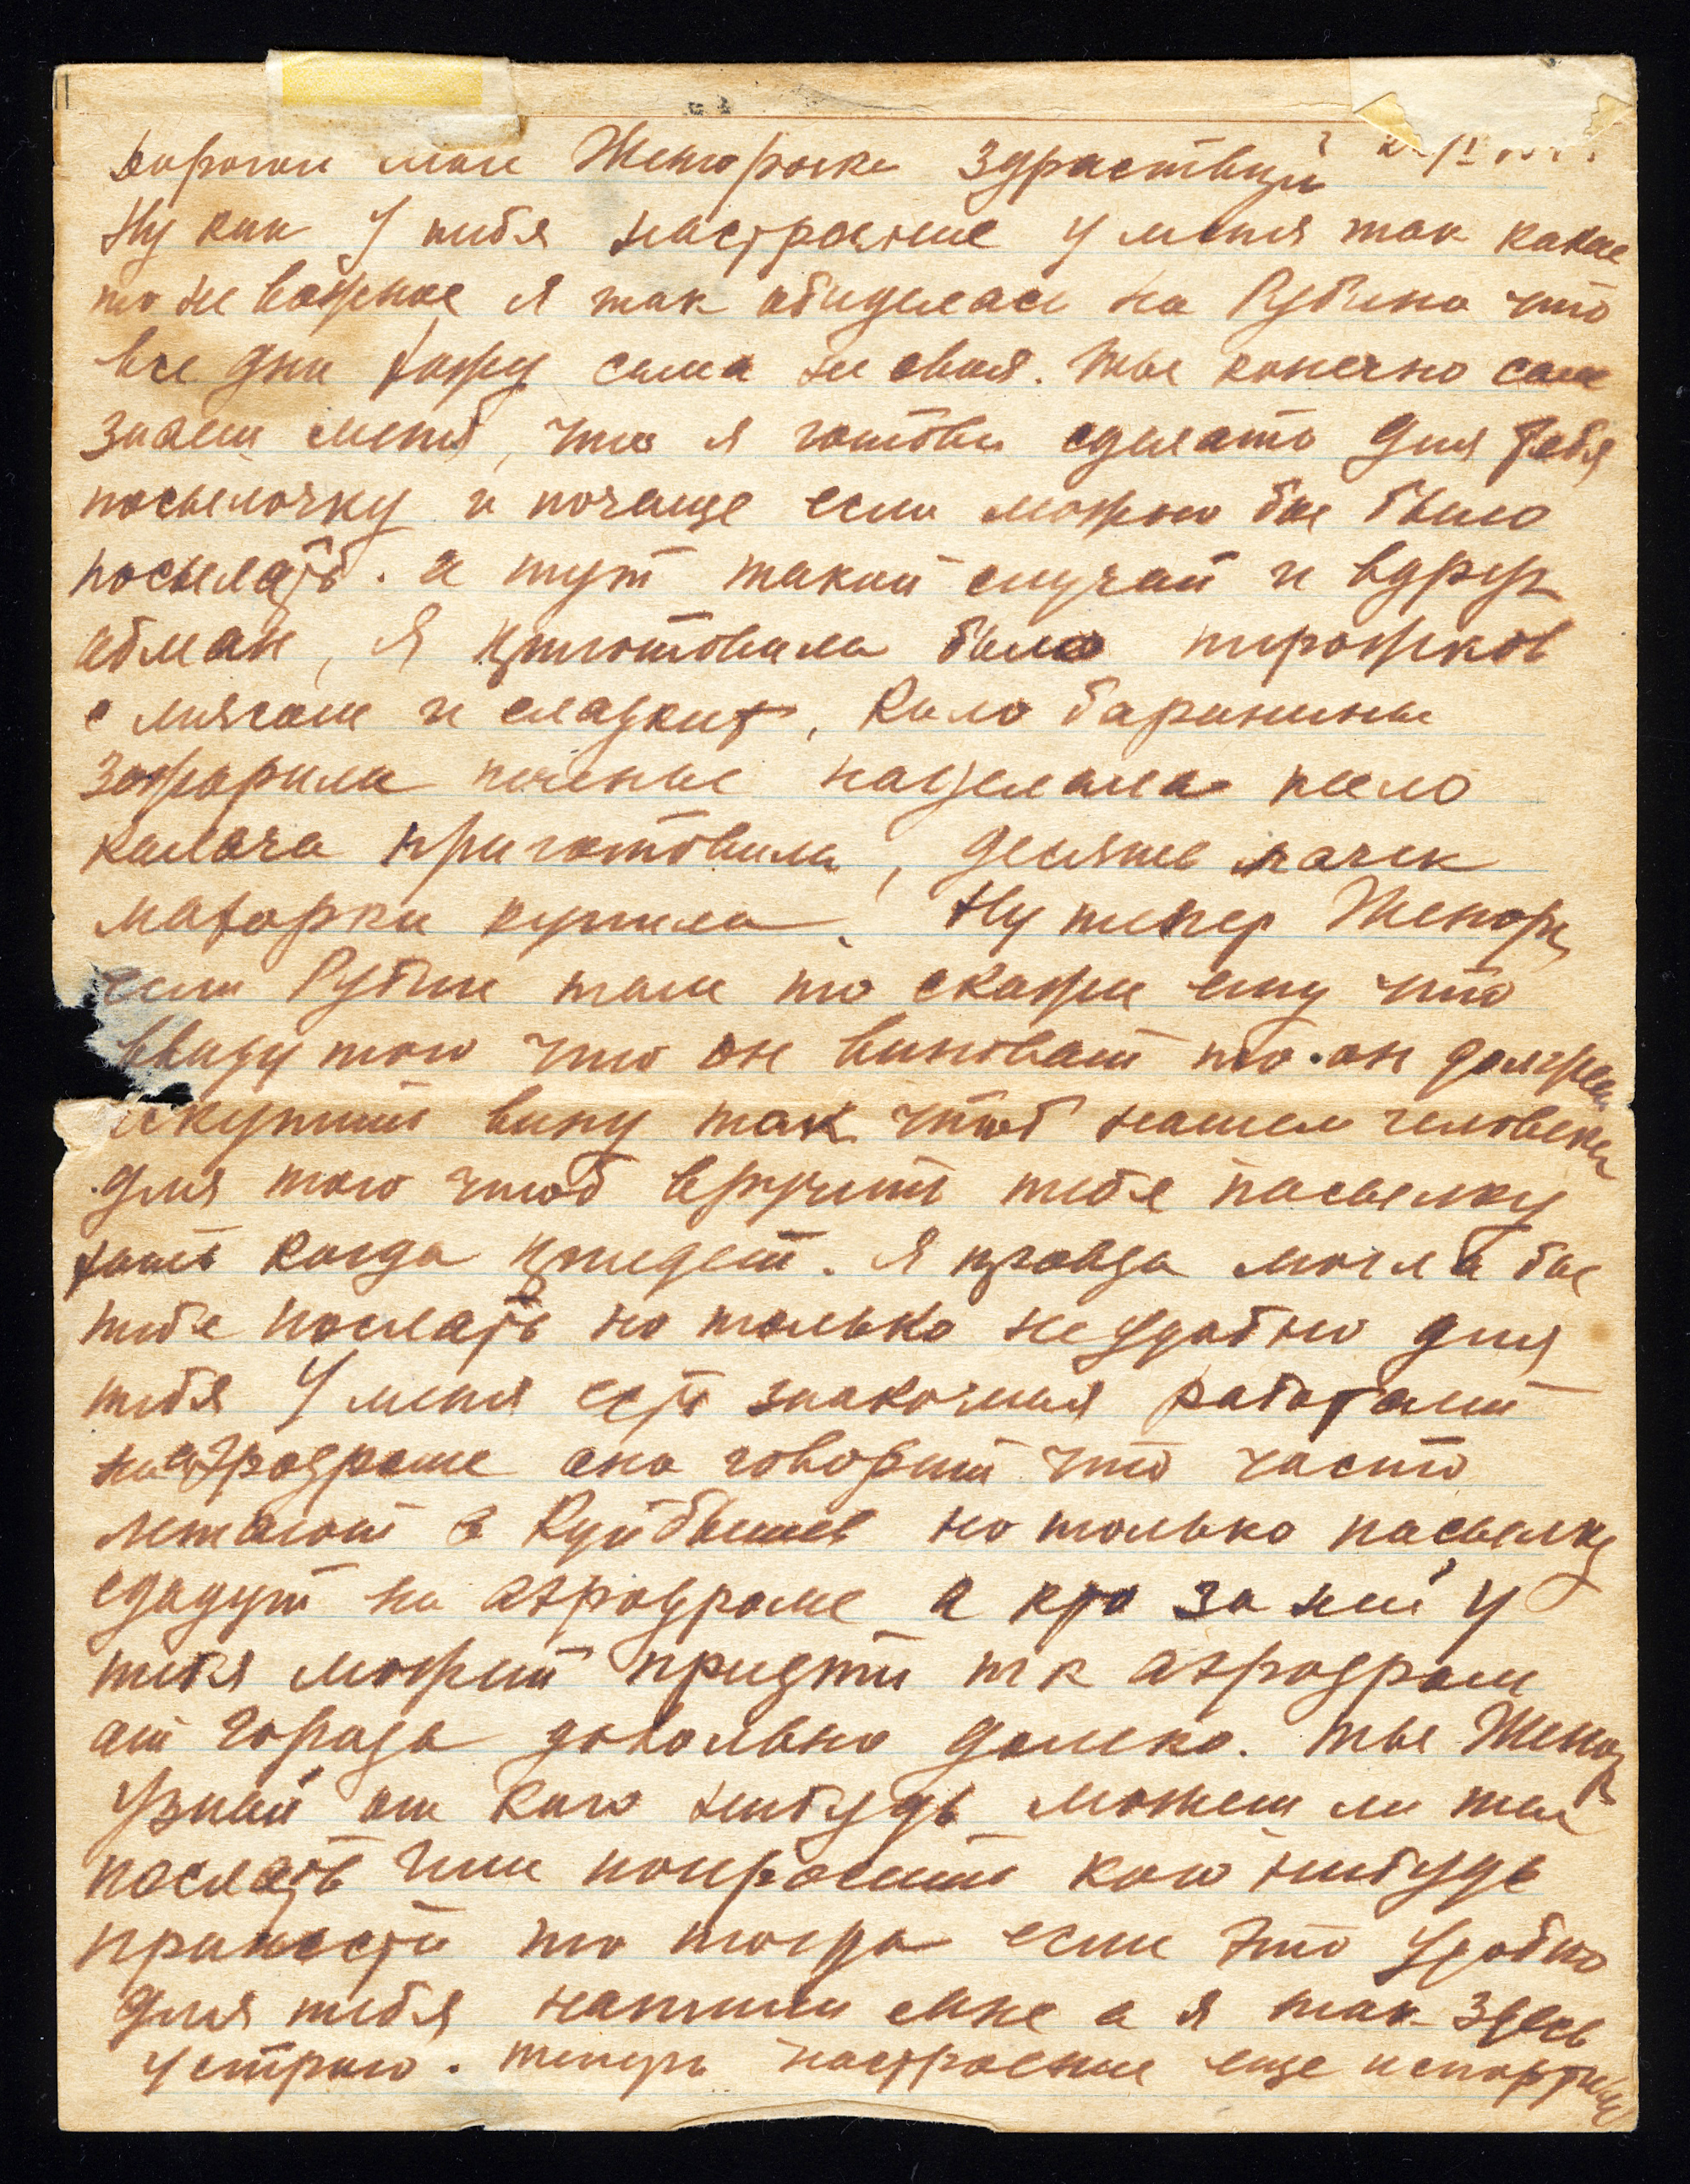 Дорогой мой Женорочка здраствуй
Ну как у тибя настроение у меня так какое
то не важное я так абиделась на Рубина что
все дни хожу сама не своя. Ты конечно сам
знаеш меня, что я готова сделать для тебя
посылочку и почаще если можно бы было
посылать. а тут такой случай и вдруг
абман, Я приготовила было пирожков
с мясом и сладких, Кило баринины
зажарила печенье наделала кило
калача приготовила, десять пачек
махорки купила. Ну тепер Женор
если Рубин там то скажи ему что
ввиду того что он виноват то он должен
искупить вину так чтоб нашел человека
для того чтоб вручить тебе посылку
хоть когда приедет. Я правда могла бы
тебе послать но только неудобно для
тебя У меня есть знакомая работает
на аэродроме она говорит что часто
летают в Куйбышев но только посылку
сдадут на аэродроме а кто за ней у
тибя можит придти т к аэродром
от города довольно далеко. ты Женор
узнай от кого нибудь можеш ли ты
послать или попросить кого нибудь
принести то тогда если это удобно
для тебя напиши мне а я так здесь
устрою. теперь настроение еще испортил